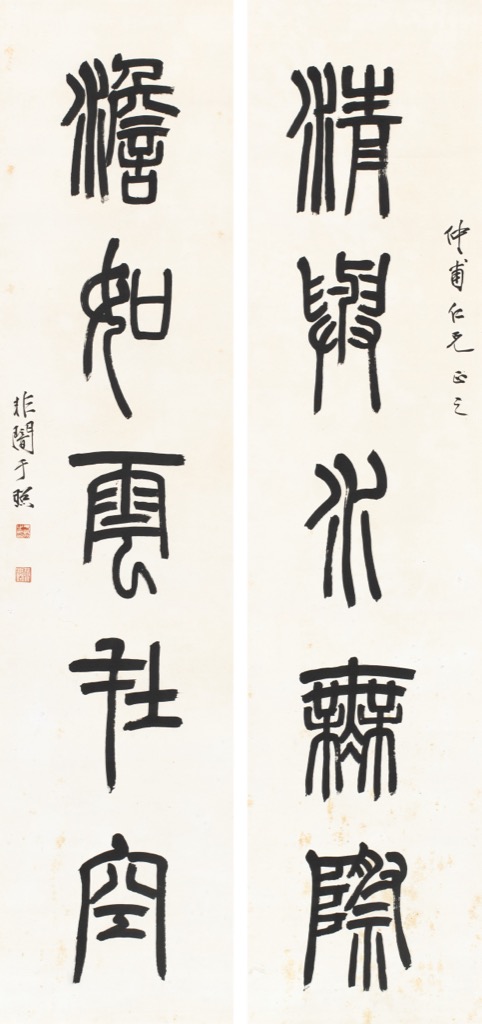 仲甫仁兄正之
清與水無際
澹如雲在空
非闇于照